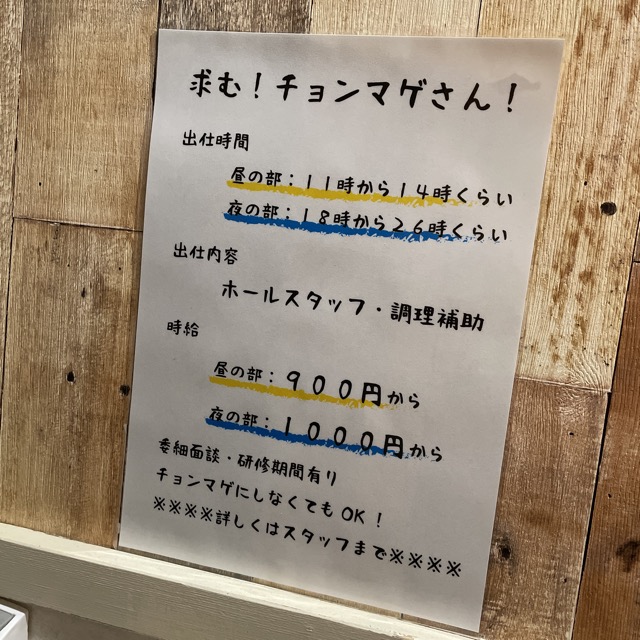 求む！チョンマゲさん！
出仕時間
昼の部：１１時から１４時くらい
夜の部：１８時から２６時くらい
出仕内容
ホールスタッフ・調理補助
時給
昼の部：９００円から
夜の部：１０００円から
委細面談・研修期間有り
チョンマゲにしなくてもOK！
※※※※詳しくはスタッフまで※※※※